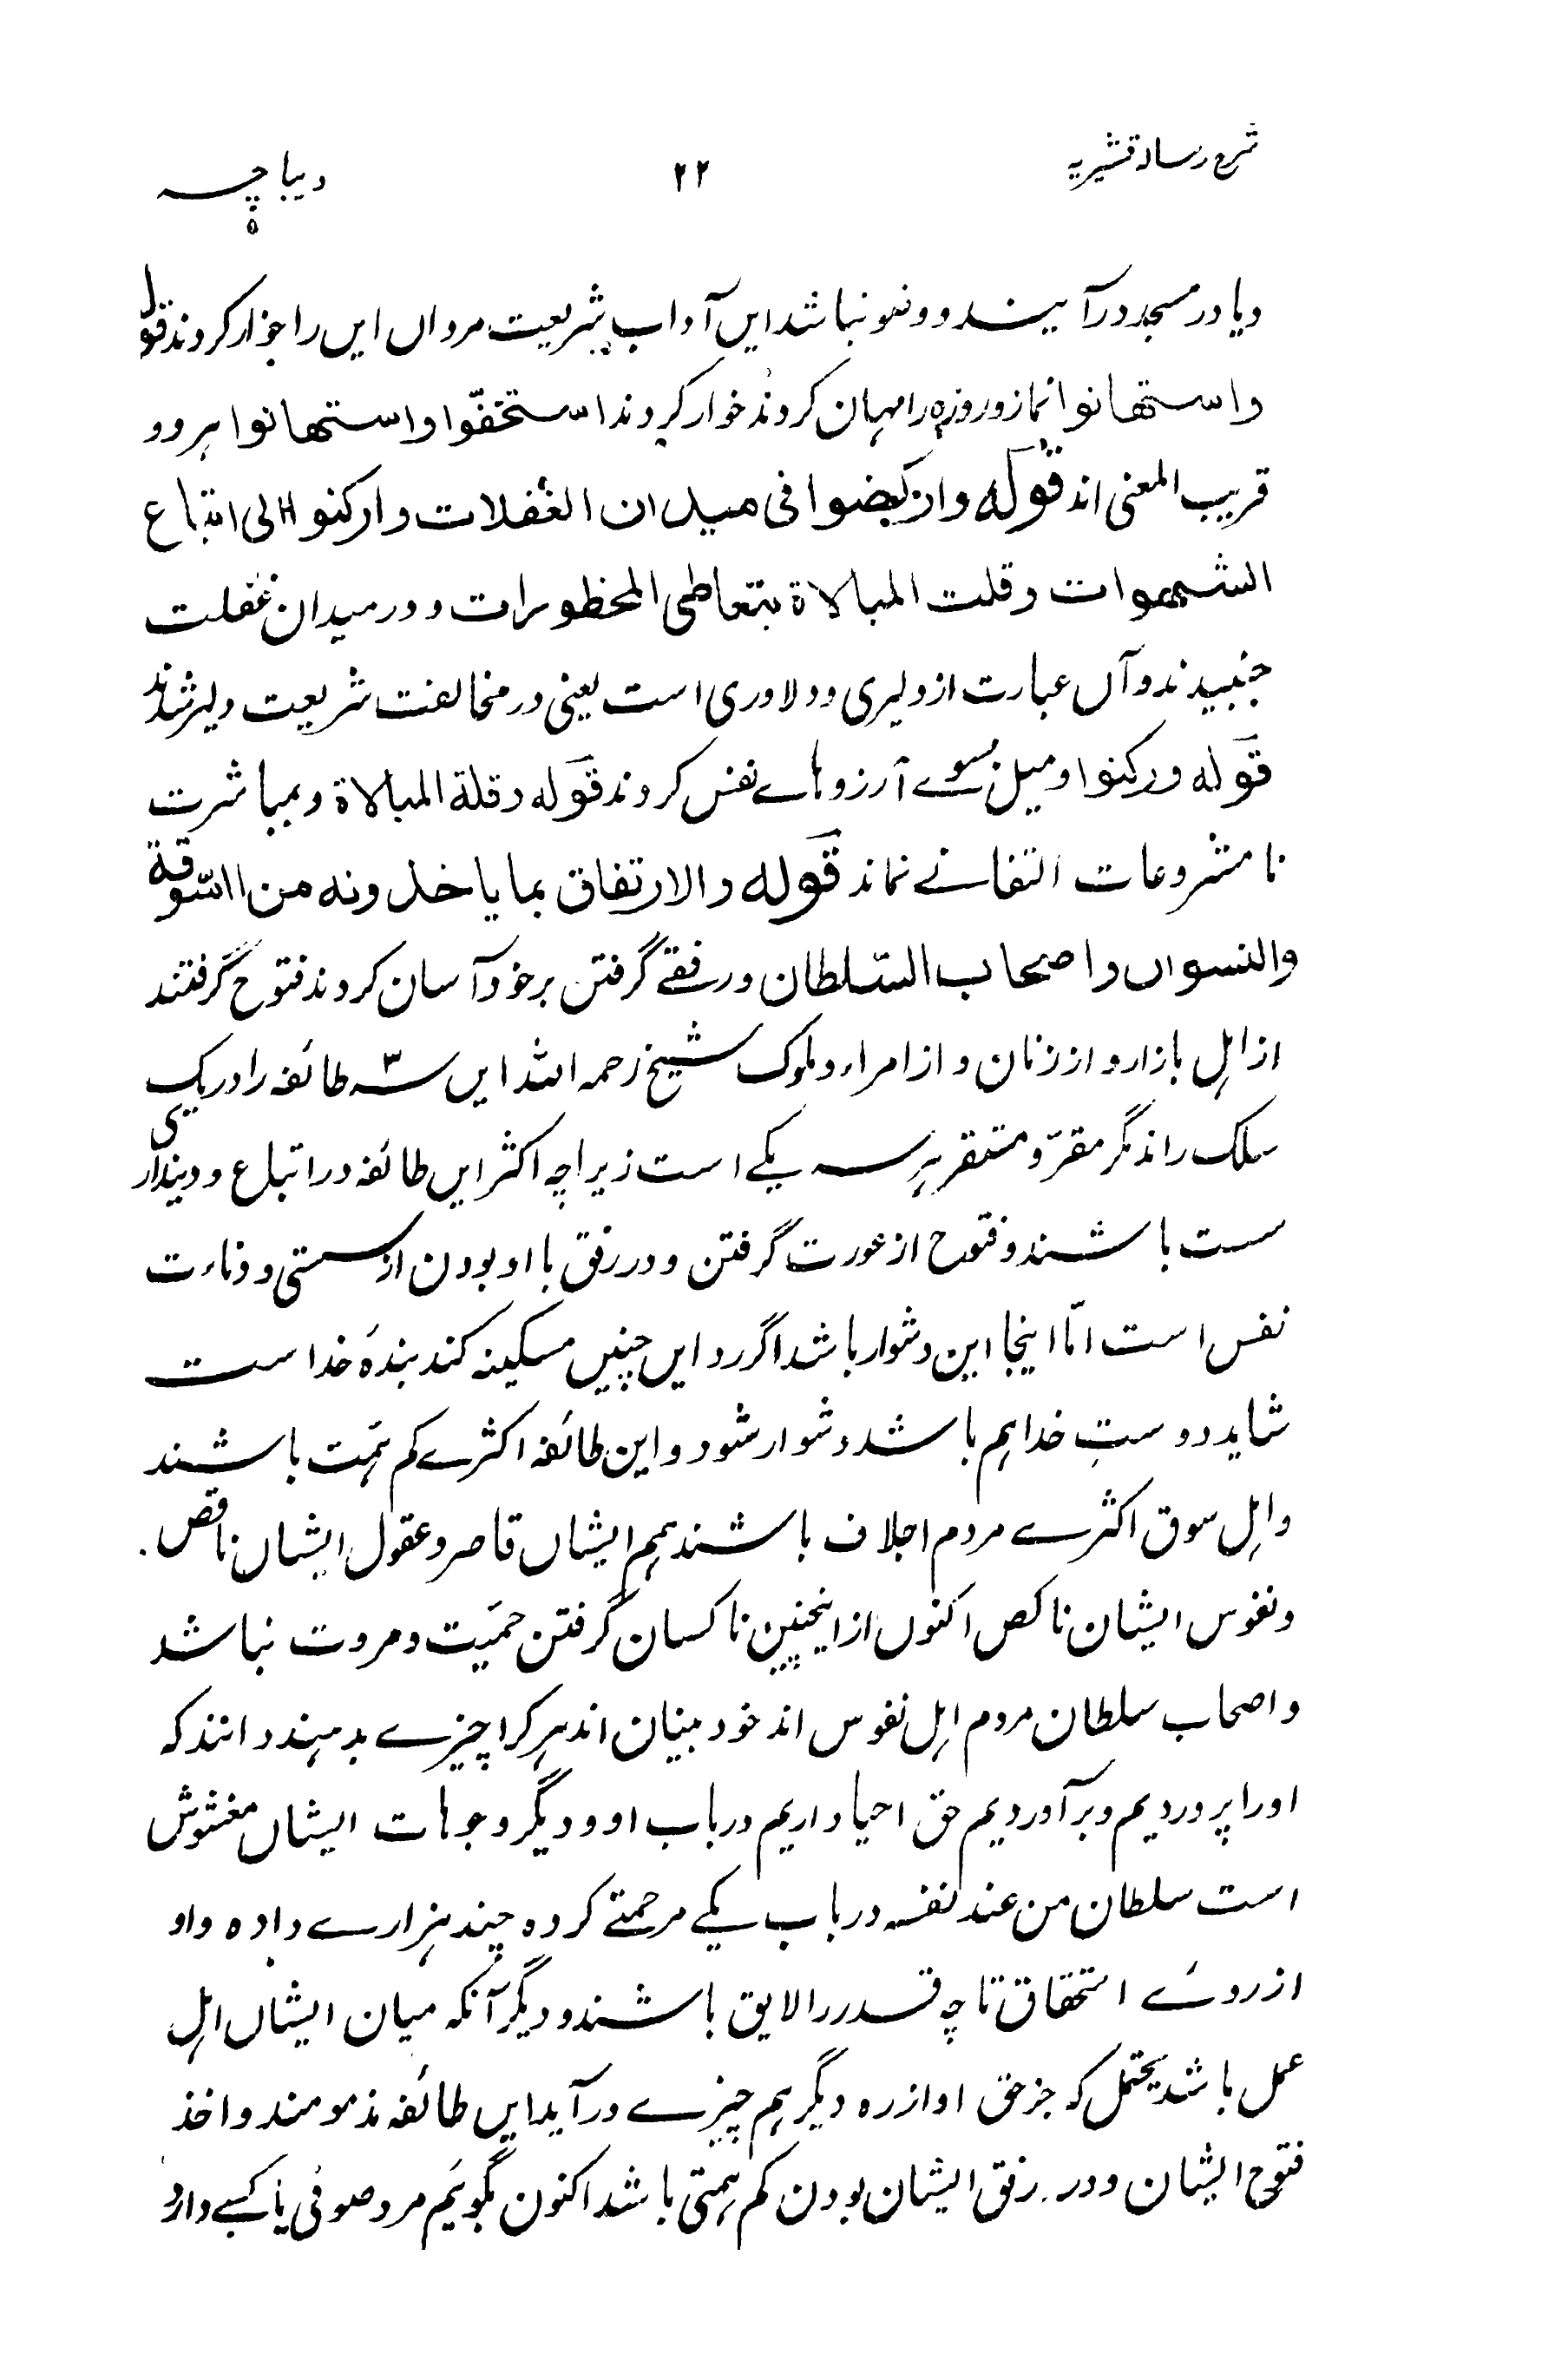 شرح رسالہ قشیریہ
۲۲
دیباچہ
ویا در مسجد در آیند و وضو نباشد ایں آداب شریعت مرد اں ایں را خوار کردند قولہ
واستھانوا نماز و روزہ را مہان کردند خوار کردند استخفّوا واستھانوا ہر دو
قریب المعنی اند قولہ وارکضوا فی میدان الغفلات وارکنوا الی اتباع
الشھوات وقلت المبالاة بتعاطی المحظورات و در میدان غفلت
جنبیدند و آں عبارت از دلیری و دلاوری است یعنی در مخالفت شریعت دلیر شدند
قولہ ورکنوا و میل بسوے آرزوہاے نفس کردند قولہ وقلة المبالاة و بمباشرت
نامشروعات التفاتے نماند قولہ والارتفاق بما یاخذونہ من السّوقة
والنسواں واصحاب السّلطان و رفقے گرفتن بر خود آسان کردند فتوح گرفتند
از اہل بازار و از زنان و از امراء و ملوک شیخ رحمہ اللہ ایں سہ ۳ طائفہ را در یک
سلک راند مگر مقرّ و متقر ہر سہ یکے است زیراچہ اکثر ایں طائفہ در اتباع و دینداری
سست باشند و فتوح از عورت گرفتن و در رفق با او بودن از سستی و دناءت
نفس است امّا اینجا این دشوار باشد اگر رد ایں چنیں مسکینہ کند بندۂ خداست
شاید دوستِ خدا ہم باشد دشوار شود و این طائفہ اکثرے کم ہمّت باشند
و اہل سوق اکثرے مردم اجلاف باشند ہمم ایشاں قاصر و عقول ایشاں ناقص
و نفوس ایشان ناکص اکنوں از اینچنین ناکسان گرفتن حمیّت و مروت نباشد
و اصحاب سلطان مردم اہل نفوس اند خود بینان اند ہر کرا چیزے بدہند دانند کہ
اورا پروردیم و بر آوردیم حق احیا داریم در باب او و دیگر وجوہات ایشاں مغشوش
است سلطان من عند نفسہ در باب یکے مرحمتے کردہ چند ہزارے دادہ و او
از روئے استحقاق تا چہ قدر را لایق باشند و دیگر آنکہ میان ایشاں اہل
عمل باشد یحتمل کہ جز حق او از رہ دیگر ہم چیزے در آید ایں طائفہ مذمومند و اخذ
فتوح ایشان و در رفق ایشان بودن کم ہمتی باشد اکنون بگوئیم مرد صوفی یا کسبے دارد